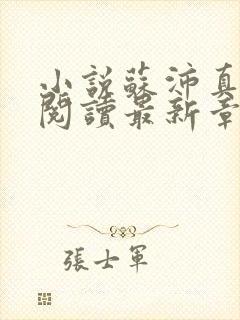 小說蘇沛真
閱讀最新章
張士軍